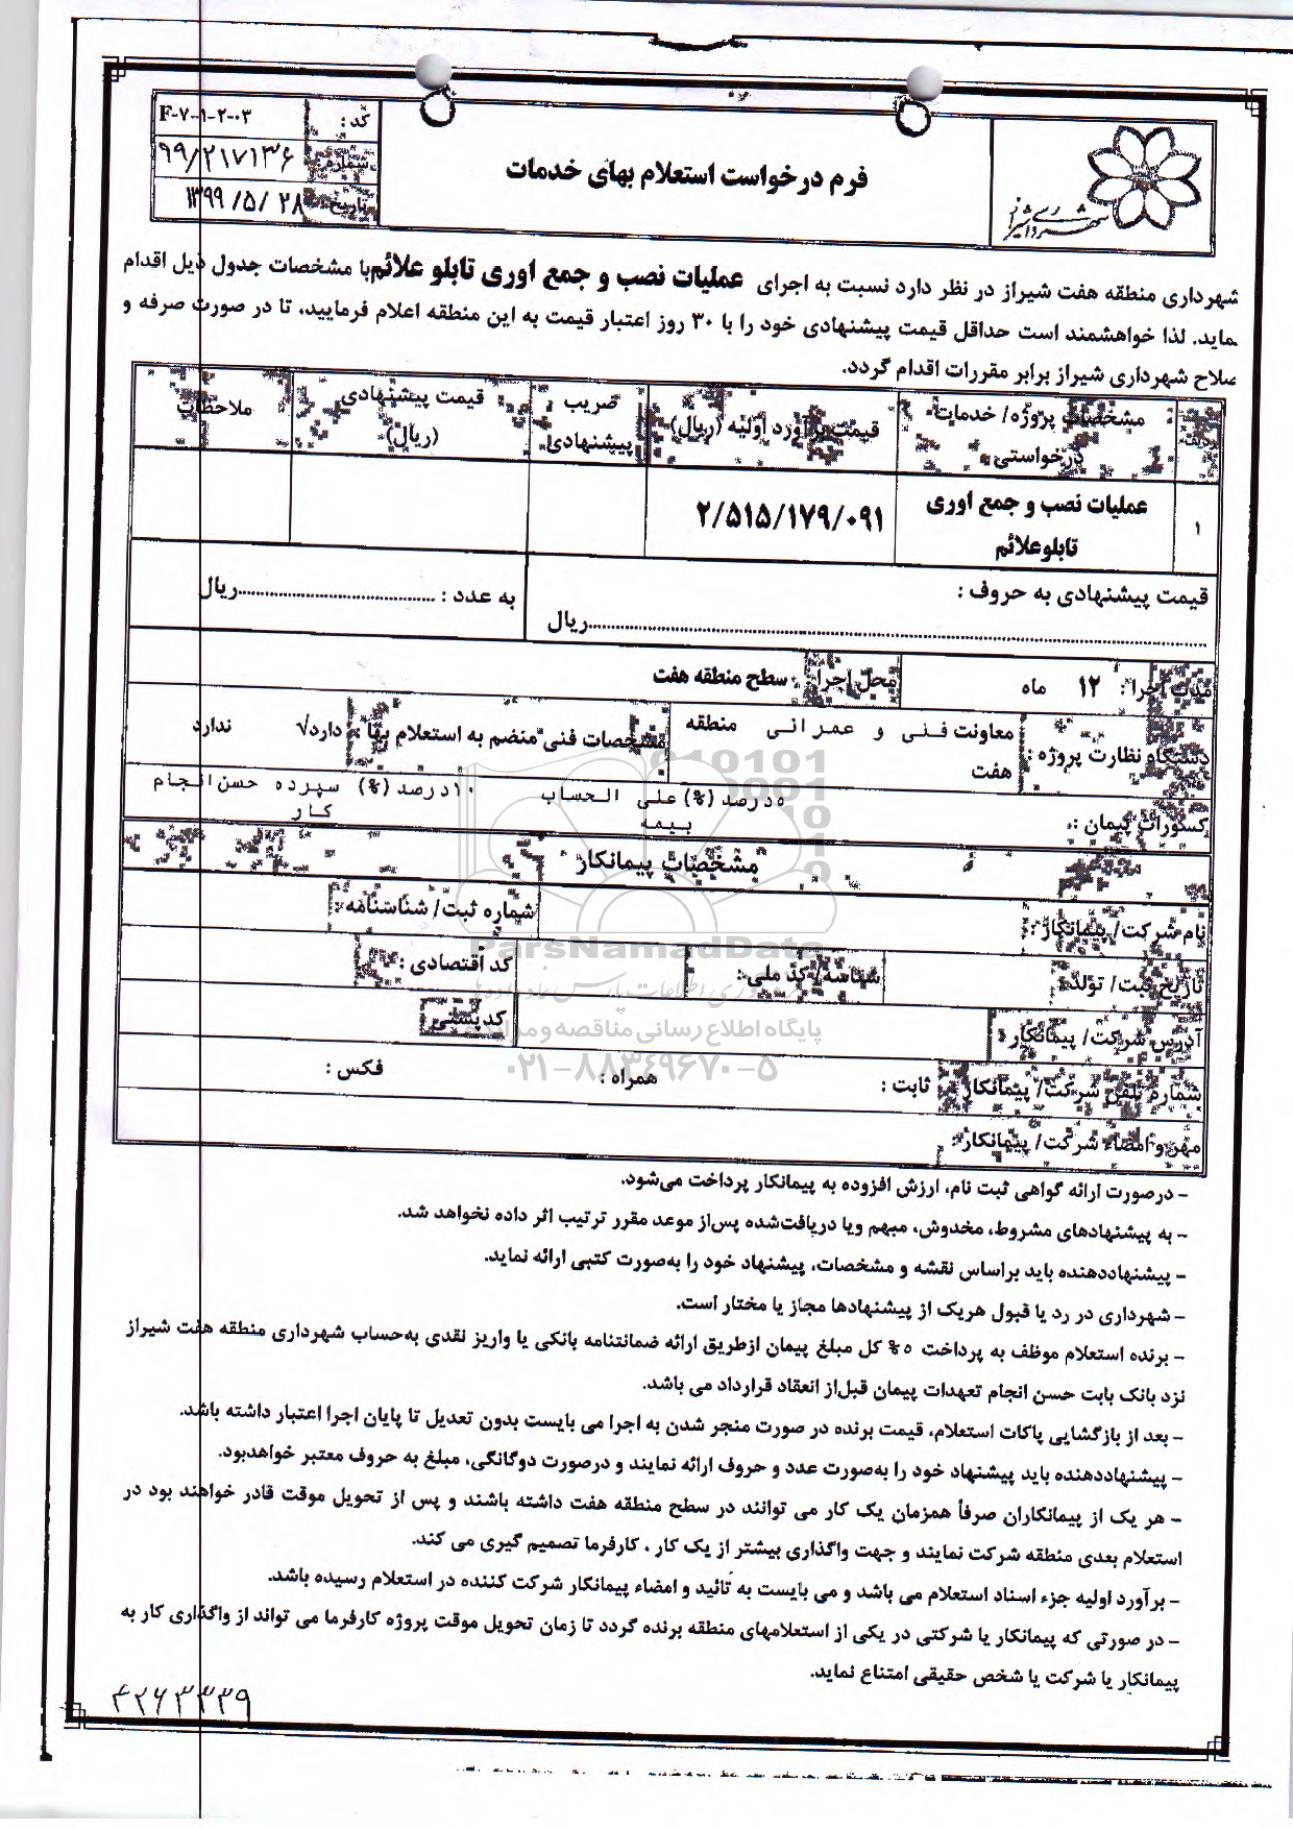 کد :
F-۷-۱-۲-۰۳
شماره :
۹۹/۲۱۷۱۳۶
تاریخ :
۱۳۹۹ /۵/ ۲۸
فرم درخواست استعلام بهای خدمات
شهرداری شیراز
شهرداری منطقه هفت شیراز در نظر دارد نسبت به اجرای عملیات نصب و جمع اوری تابلو علائم با مشخصات جدول ذیل اقدام
ماید. لذا خواهشمند است حداقل قیمت پیشنهادی خود را با ۳۰ روز اعتبار قیمت به این منطقه اعلام فرمایید. تا در صورت صرفه و
صلاح شهرداری شیراز برابر مقررات اقدام گردد.
ردیف
مشخصات پروژه/ خدمات درخواستی
قیمت برآورد اولیه (ریال)
ضریب پیشنهادی
قیمت پیشنهادی (ریال)
ملاحظات
۱
عملیات نصب و جمع اوری
تابلوعلائم
۲/۵۱۵/۱۷۹/۰۹۱
قیمت پیشنهادی به حروف :
..........ریال
به عدد : ..........ریال
مدت اجرا : ۱۲ ماه
محل اجرا : سطح منطقه هفت
دستگاه نظارت پروژه : معاونت فنی و عمرانی منطقه
هفت
مشخصات فنی منضم به استعلام بها : دارد√ ندارد
کسورات پیمان : ۵درصد (%) علی الحساب بیمه ۱۰درصد (%) سپرده حسن انجام کار
مشخصات پیمانکار
نام شرکت/ پیمانکار :
شماره ثبت/ شناسنامه :
تاریخ ثبت/ تولد :
شناسه/ کد ملی :
کد اقتصادی :
آدرس شرکت/ پیمانکار :
کدپستی :
شماره تلفن شرکت/ پیمانکار : ثابت : همراه : فکس :
مهر و امضاء شرکت/ پیمانکار :
ParsNamadData
پایگاه اطلاع رسانی مناقصه و مزایده
۰۲۱-۸۸۳۴۹۶۷۰-۵
- درصورت ارائه گواهی ثبت نام، ارزش افزوده به پیمانکار پرداخت می‌شود.
- به پیشنهادهای مشروط، مخدوش، مبهم ویا دریافت‌شده پس‌از موعد مقرر ترتیب اثر داده نخواهد شد.
- پیشنهاددهنده باید براساس نقشه و مشخصات، پیشنهاد خود را به‌صورت کتبی ارائه نماید.
- شهرداری در رد یا قبول هریک از پیشنهادها مجاز یا مختار است.
- برنده استعلام موظف به پرداخت ۵% کل مبلغ پیمان ازطریق ارائه ضمانتنامه بانکی یا واریز نقدی به‌حساب شهرداری منطقه هفت شیراز
نزد بانک بابت حسن انجام تعهدات پیمان قبل‌از انعقاد قرارداد می باشد.
- بعد از بازگشایی پاکات استعلام، قیمت برنده در صورت منجر شدن به اجرا می بایست بدون تعدیل تا پایان اجرا اعتبار داشته باشد.
- پیشنهاددهنده باید پیشنهاد خود را به‌صورت عدد و حروف ارائه نمایند و درصورت دوگانگی، مبلغ به حروف معتبر خواهدبود.
- هر یک از پیمانکاران صرفأ همزمان یک کار می توانند در سطح منطقه هفت داشته باشند و پس از تحویل موقت قادر خواهند بود در
استعلام بعدی منطقه شرکت نمایند و جهت واگذاری بیشتر از یک کار ، کارفرما تصمیم گیری می کند.
- برآورد اولیه جزء اسناد استعلام می باشد و می بایست به تائید و امضاء پیمانکار شرکت کننده در استعلام رسیده باشد.
- در صورتی که پیمانکار یا شرکتی در یکی از استعلامهای منطقه برنده گردد تا زمان تحویل موقت پروژه کارفرما می تواند از واگذاری کار به
پیمانکار یا شرکت یا شخص حقیقی امتناع نماید.
۴۲۶۳۳۳۹